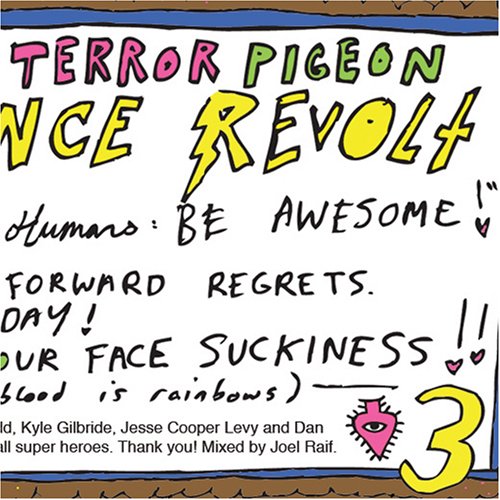 TERROR PIGEON
NCE REVOLT
Humans: BE AWESOME!"
FORWARD REGRETS.
DAY!
OUR FACE SUCKINESS!!
blood is rainbows)
ld, Kyle Gilbride, Jesse Cooper Levy and Dan
all super heroes. Thank you! Mixed by Joel Raif.
3